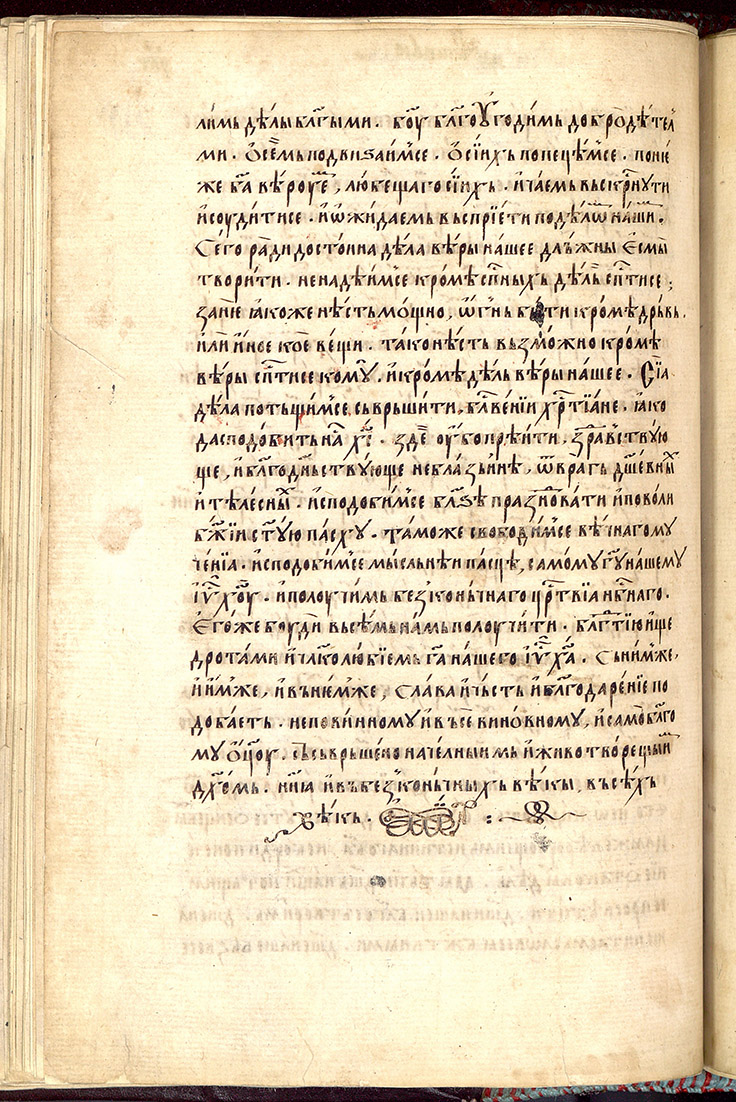 лимь дѣлы бл҃гыми . бо҃у бл҃гоꙋгодимь добродѣтел
ми . ѡ сем̾ь подвиѕаимсе . ѡ сїихь попецѣмсе . поне
же б҃а вѣроуе , любещаго сїихь . и чаемь вьскр҃нути
и соудитисе . и ѡжидаемь вьспрїети по дѣлѡ наши .
Сего ради достоина дѣла вѣры нашее дльжны есмы
творити . не надѣимсе кромѣ сп҃ныхь дѣль сп҃тисе ;
зане ꙗкоже нѣсть мощно , ѡгнь быти кромѣ дрьвь .
или иное кое вещи . тако нѣсть вьзможно кромѣ
вѣры сп҃тисе комꙋ . и кромѣ дѣль вѣры нашее . Сїа
дѣла потьщимсе сьврьшити , бл҃вении хр҃тїане . ꙗко
да сподобить на х҃с . зде оубо прѣити . здравьствую
ще , и бл҃годньствующе неблазьннѣ , ѿ врагь дш҃евныⷯ
и тѣлесныⷯ . и сподобимсе бл҃ѕѣ праздновати и по воли
бж҃їи ст҃ую пасху . тамо же свободимсе вѣчнаго му
ченїа . и сподобимсе мысльнѣи пасцѣ , самому г҃у нашему
і҃ꙋ х҃оу . и полоучимь безконьчнаго цр҃твїа нб҃наго .
Егоже боуди вьсѣмь намь полоучити . бл҃гтїю и ще
дротами и чл҃колюбїемь г҃а нашего і҃ꙋ х҃а . Сь нимже ,
и имже , и вь немже , слава и чьсть и бл҃годаренїе по
добаеть . неповинному и вьсе виновному , и само бл҃го
му ѡц҃оу . сь сьврьшено начелныимь и животворещыⷨ
дх҃омь . нн҃ꙗ и вь безконьчныхь вѣкы , вь сѣхь
вѣкь .